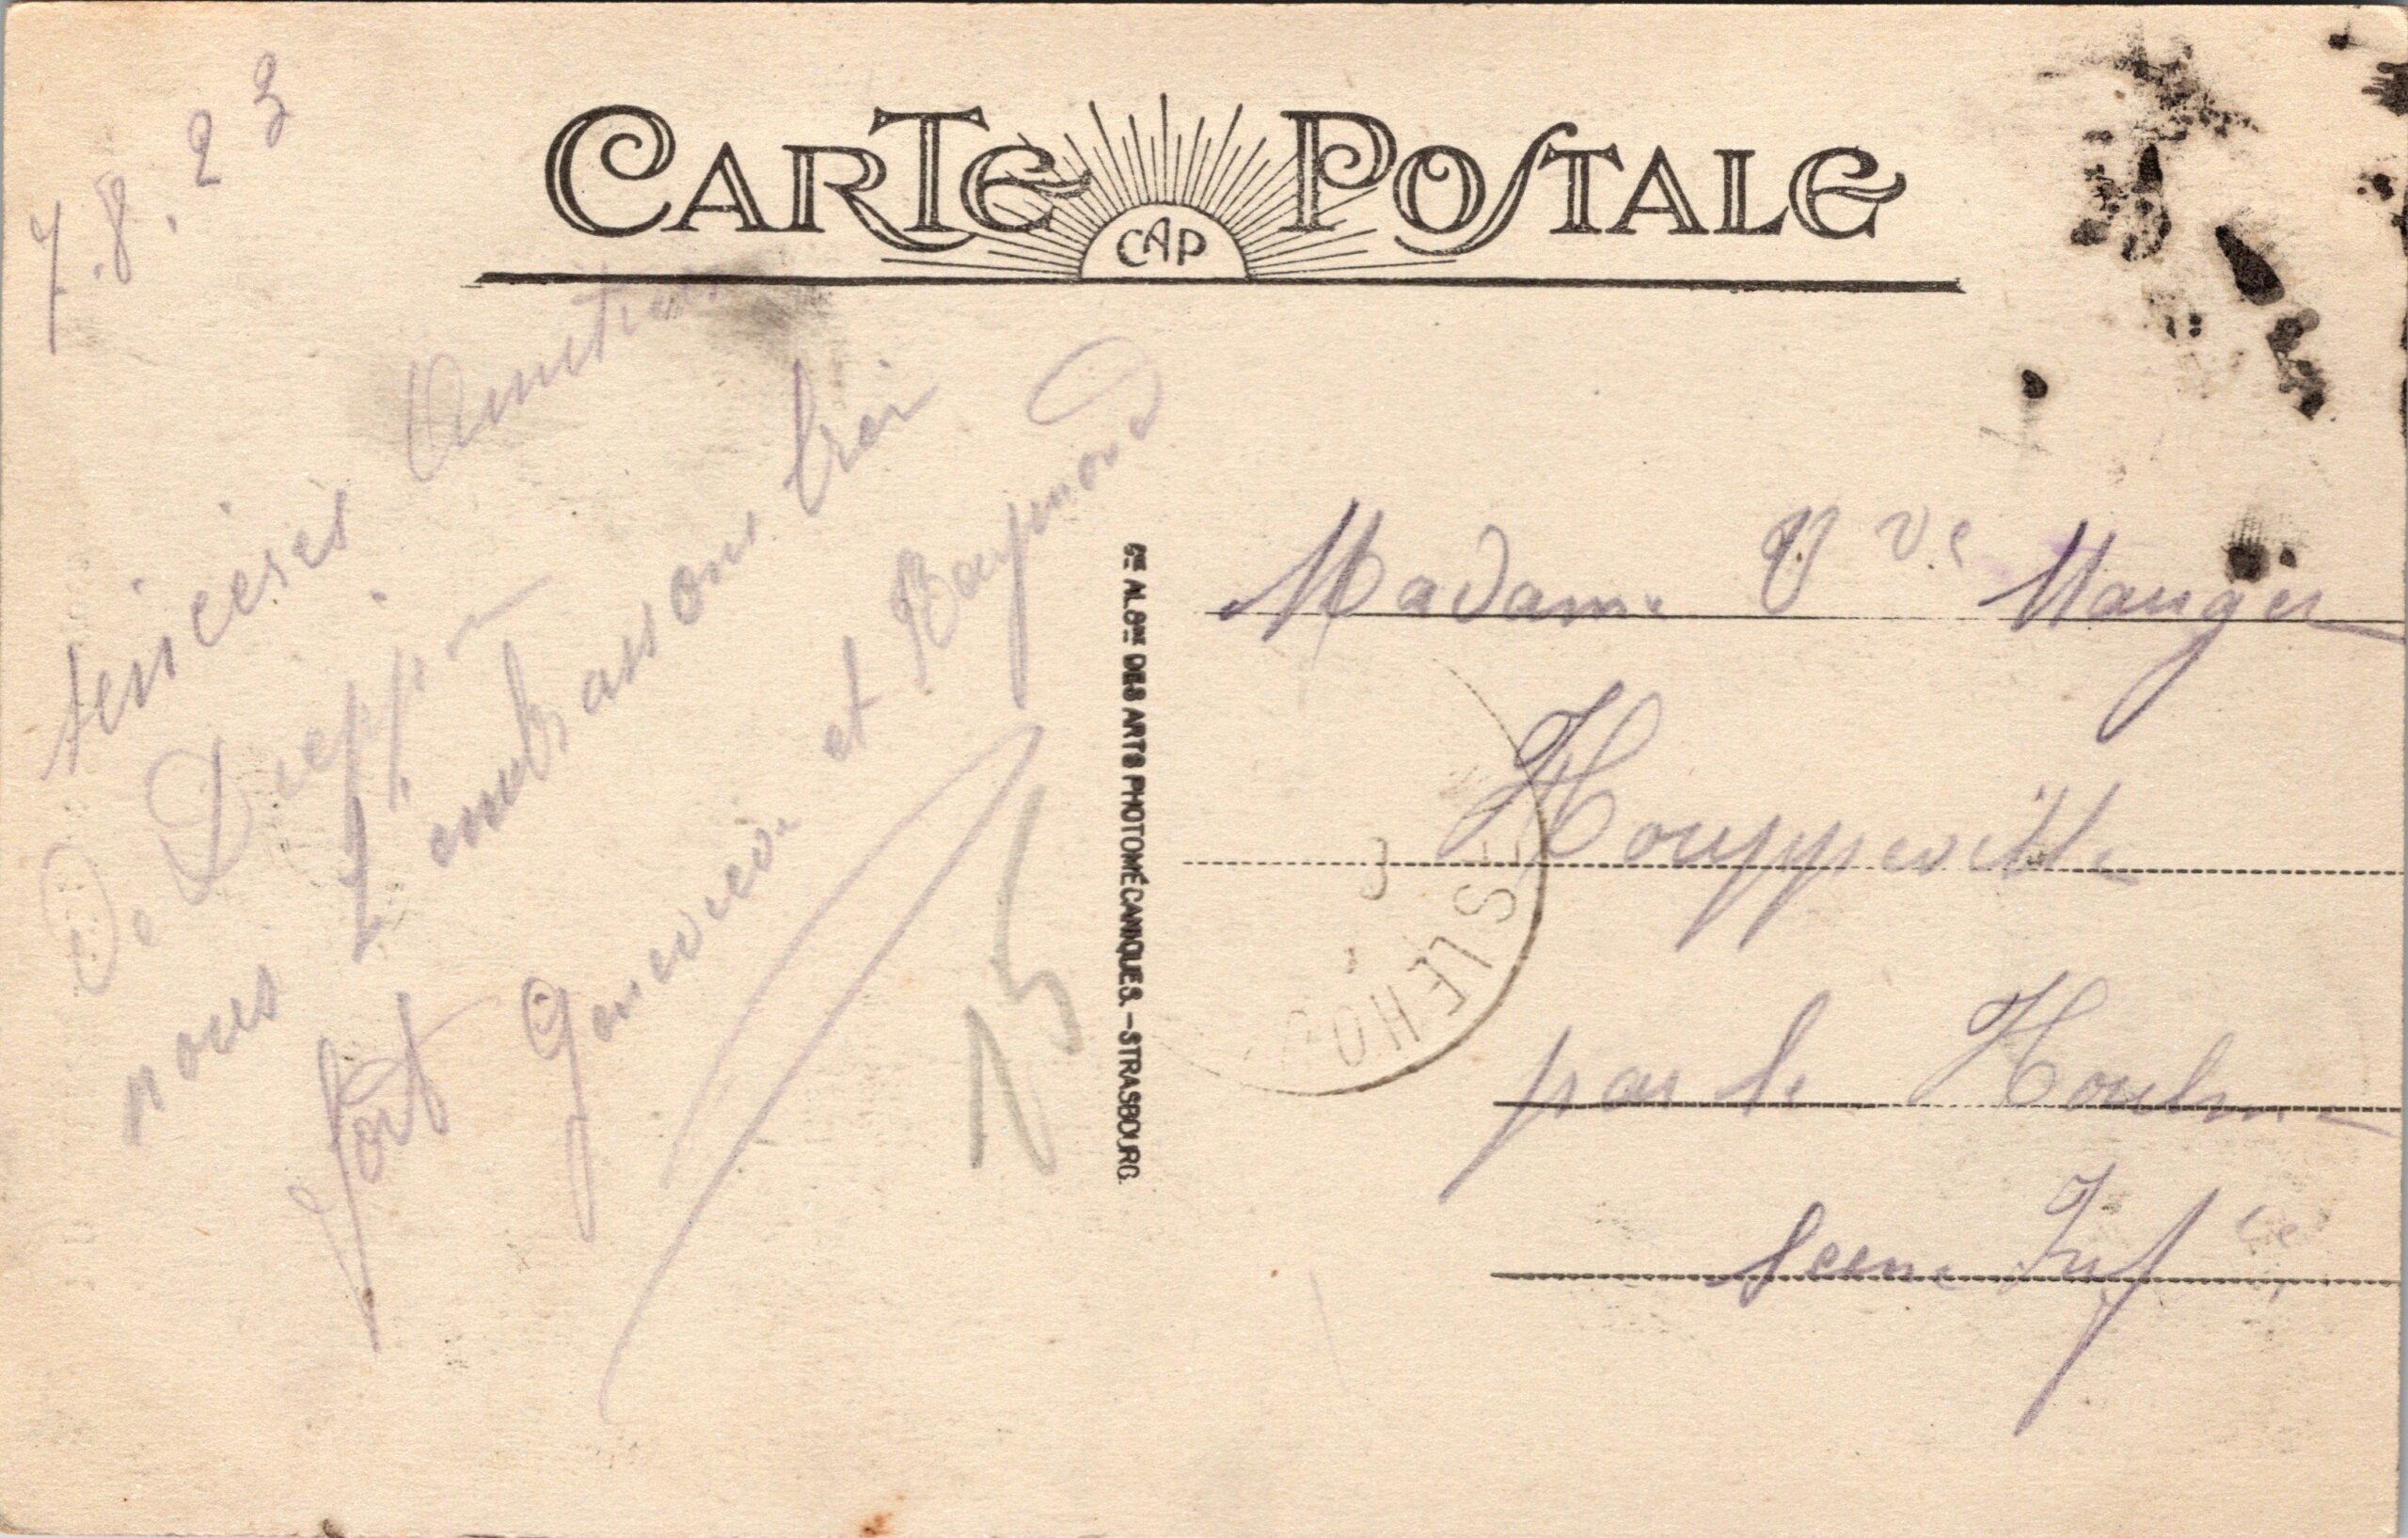 CARTE POSTALE
CAP
7.8.23
sincères Amitiés
De Dieppe
nous t'embrassons bien
fort Genevieve et Raymond
15
Cie ALSNE DES ARTS PHOTOMÉCANIQUES. - STRASBOURG.
Madame Vve Mauger
Houppeville
par le Houlme
Seine Infre